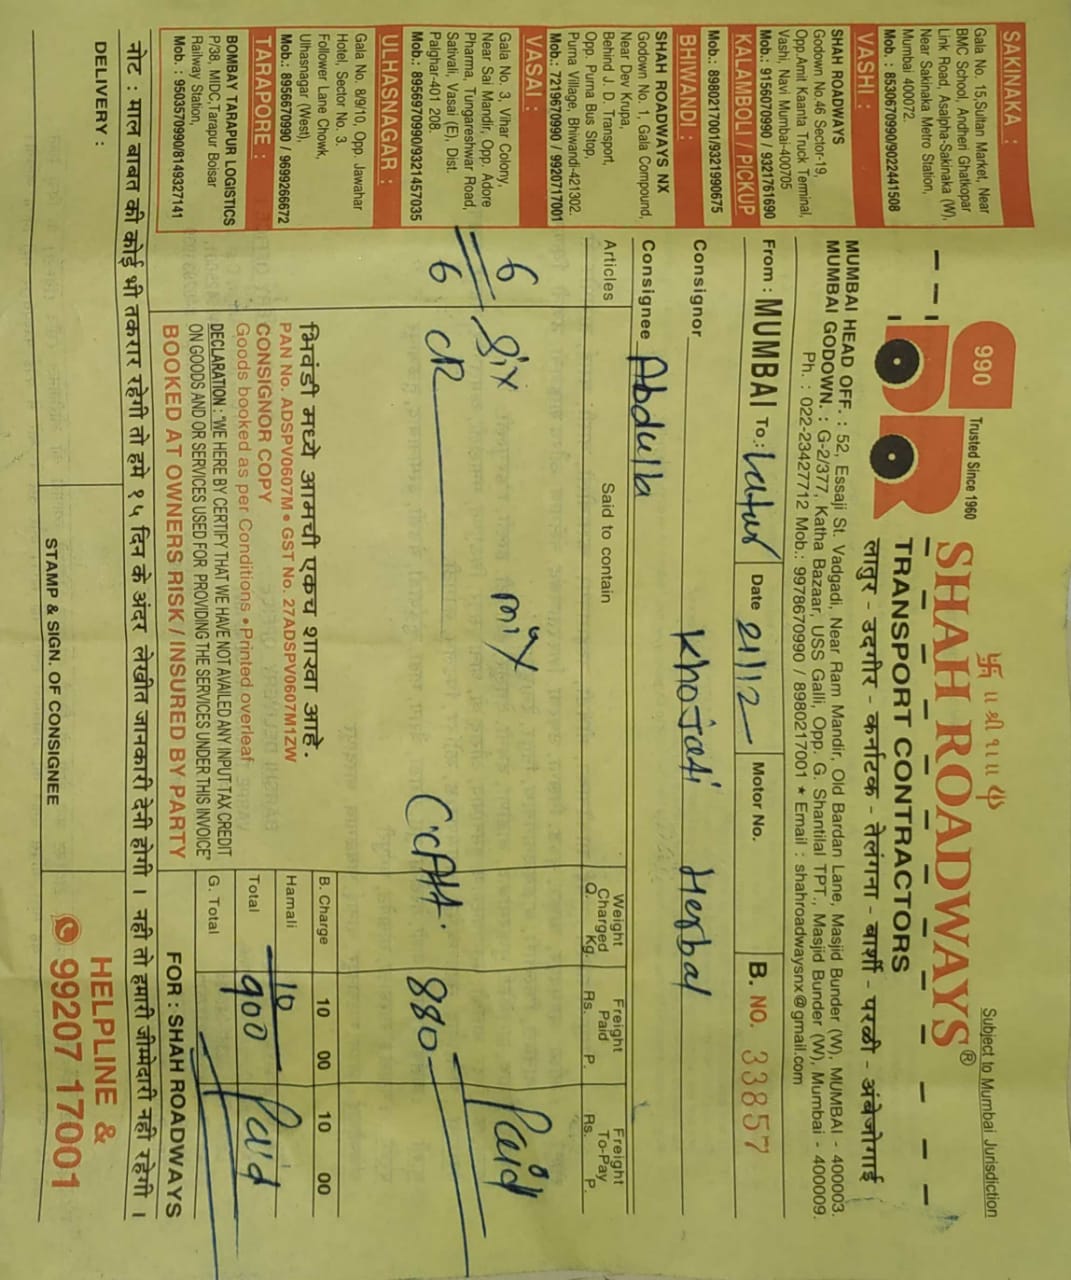 卐 ॥ श्री १ ॥ ॐ
Subject to Mumbai Jurisdiction
990
Trusted Since 1960
SHAH ROADWAYS®
TRANSPORT CONTRACTORS
लातुर - उदगीर - कर्नाटक - तेलंगना - बार्शी - परळी - अंबेजोगाई
MUMBAI HEAD OFF. : 52, Essaji St. Vadgadi, Near Ram Mandir, Old Bardan Lane, Masjid Bunder (W), MUMBAI - 400003.
MUMBAI GODOWN. : G-2/377, Katha Bazaar, USS Galli, Opp. G. Shantilal TPT., Masjid Bunder (W), Mumbai - 400009.
Ph. : 022-23427712 Mob.: 9978670990 / 8980217001 ★ Email : shahroadwaysnx@gmail.com
SAKINAKA :
Gala No. 15,Sultan Market, Near
BMC School, Andheri Ghatkopar
Link Road, Asalpha-Sakinaka (W),
Near Sakinaka Metro Station,
Mumbai 400072.
Mob. : 8530670990/9022441508
VASHI :
SHAH ROADWAYS
Godown No.46 Sector-19,
Opp.Amit Kaanta Truck Terminal,
Vashi, Navi Mumbai-400705
Mob.: 9156070990 / 9321761690
KALAMBOLI / PICKUP
Mob.: 8980217001/9321990675
BHIWANDI :
SHAH ROADWAYS NX
Godown No. 1, Gala Compound,
Near Dev Krupa,
Behind J. D. Transport,
Opp. Purna Bus Stop,
Purna Village, Bhiwandi-421302.
Mob.: 7219670990 / 9920717001
VASAI :
Gala No. 3, Vihar Colony,
Near Sai Mandir, Opp. Adore
Pharma, Tungareshwar Road,
Sativali, Vasai (E), Dist.
Palghar-401 208.
Mob.: 8956970990/9321457035
ULHASNAGAR :
Gala No. 8/9/10, Opp. Jawahar
Hotel, Sector No. 3,
Follower Lane Chowk,
Ulhasnagar (West),
Mob.: 8956670990 / 9699266672
TARAPORE :
BOMBAY TARAPUR LOGISTICS
P/38, MIDC,Tarapur Boisar
Railway Station,
Mob. : 9503570990/8149327141
From : MUMBAI To.: Latur Date 21/12 Motor No. B. NO. 33857
Consignor Khojati Herbal
Consignee Abdulla
Articles Said to contain Weight Charged Q. Kg. Freight Paid Rs. P. Freight To-Pay Rs. P.
6 Six mix Paid
6 CR 880
B. Charge 10 00 10 00
Hamali 10
Total 900 Paid
G. Total
भिवंडी मध्ये आमची एकच शाखा आहे.
PAN No. ADSPV0607M • GST No. 27ADSPV0607M1ZW
CONSIGNOR COPY
Goods booked as per Conditions • Printed overleaf
DECLARATION : "WE HERE BY CERTIFY THAT WE HAVE NOT AVAILED ANY INPUT TAX CREDIT
ON GOODS AND OR SERVICES USED FOR PROVIDING THE SERVICES UNDER THIS INVOICE"
BOOKED AT OWNERS RISK / INSURED BY PARTY
FOR : SHAH ROADWAYS
नोट : माल बाबत की कोई भी तकरार रहेगी तो हमे १५ दिन के अंदर लेखीत जानकारी देनी होगी । नही तो हमारी जीम्मेदारी नही रहेगी ।
DELIVERY :
STAMP & SIGN. OF CONSIGNEE
HELPLINE &
99207 17001